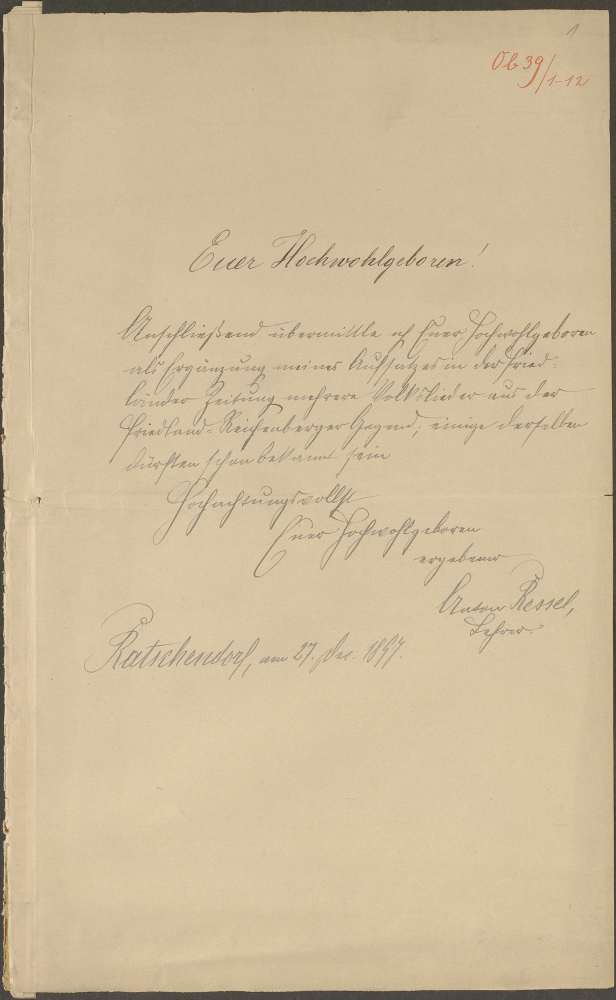 1
Ob 39/1-12
Euer Hochwohlgeboren!
Anschließend übermittle ich Euer Hochwohlgeboren
als Ergänzung meines Aufsatzes in der Fried-
länder Zeitung mehrere Volkslieder aus der
Friedland-Reichenberger Gegend; einige derselben
dürften schon bekannt sein
Hochachtungsvollst
Euer Hochwohlgeboren
ergebener
Anton Ressel,
Lehrer.
Ratschendorf, am 27. Dez. 1897.